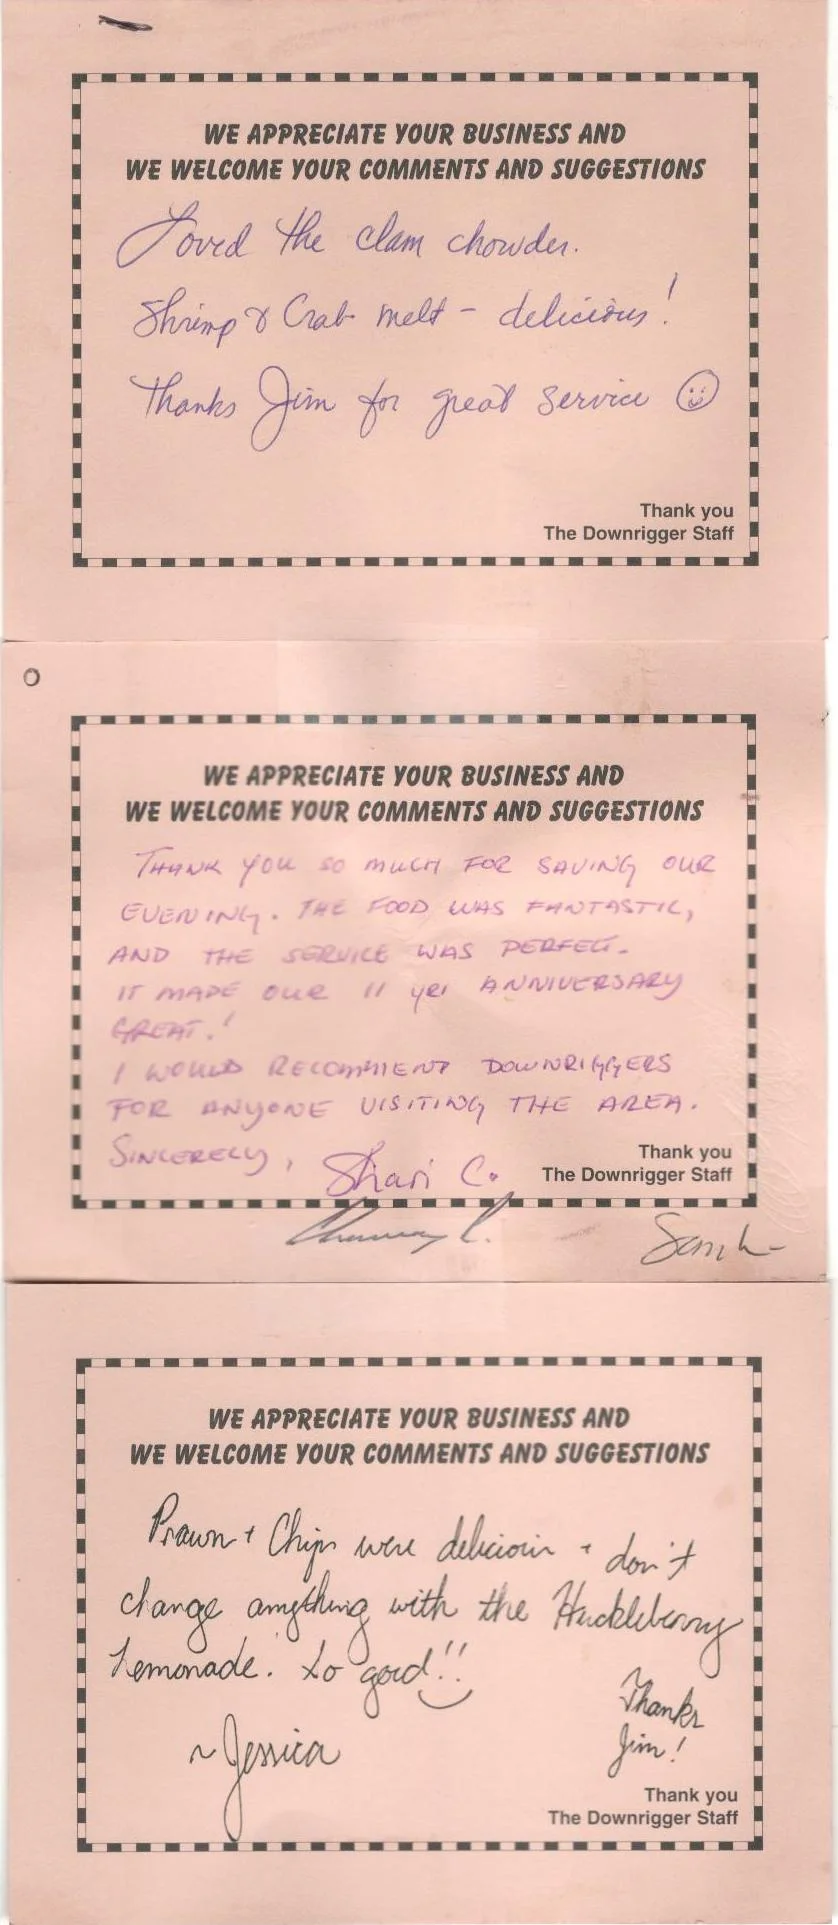 WE APPRECIATE YOUR BUSINESS AND
WE WELCOME YOUR COMMENTS AND SUGGESTIONS
Loved the clam chowder.
Shrimp & Crab melt - delicious!
Thanks Jim for great service
Thank you
The Downrigger Staff
WE APPRECIATE YOUR BUSINESS AND
WE WELCOME YOUR COMMENTS AND SUGGESTIONS
THANK YOU SO MUCH FOR SAVING OUR
EVENING. THE FOOD WAS FANTASTIC,
AND THE SERVICE WAS PERFECT.
IT MADE OUR 11 yr ANNIVERSARY
GREAT!
I WOULD RECOMMEND DOWNRIGGERS
FOR ANYONE VISITING THE AREA.
SINCERELY, Shari C.
Thank you
The Downrigger Staff
WE APPRECIATE YOUR BUSINESS AND
WE WELCOME YOUR COMMENTS AND SUGGESTIONS
Prawn + Chips were delicious + don't
change anything with the Huckleberry
Lemonade. So good!!
~Jessica
Thanks
Jim!
Thank you
The Downrigger Staff